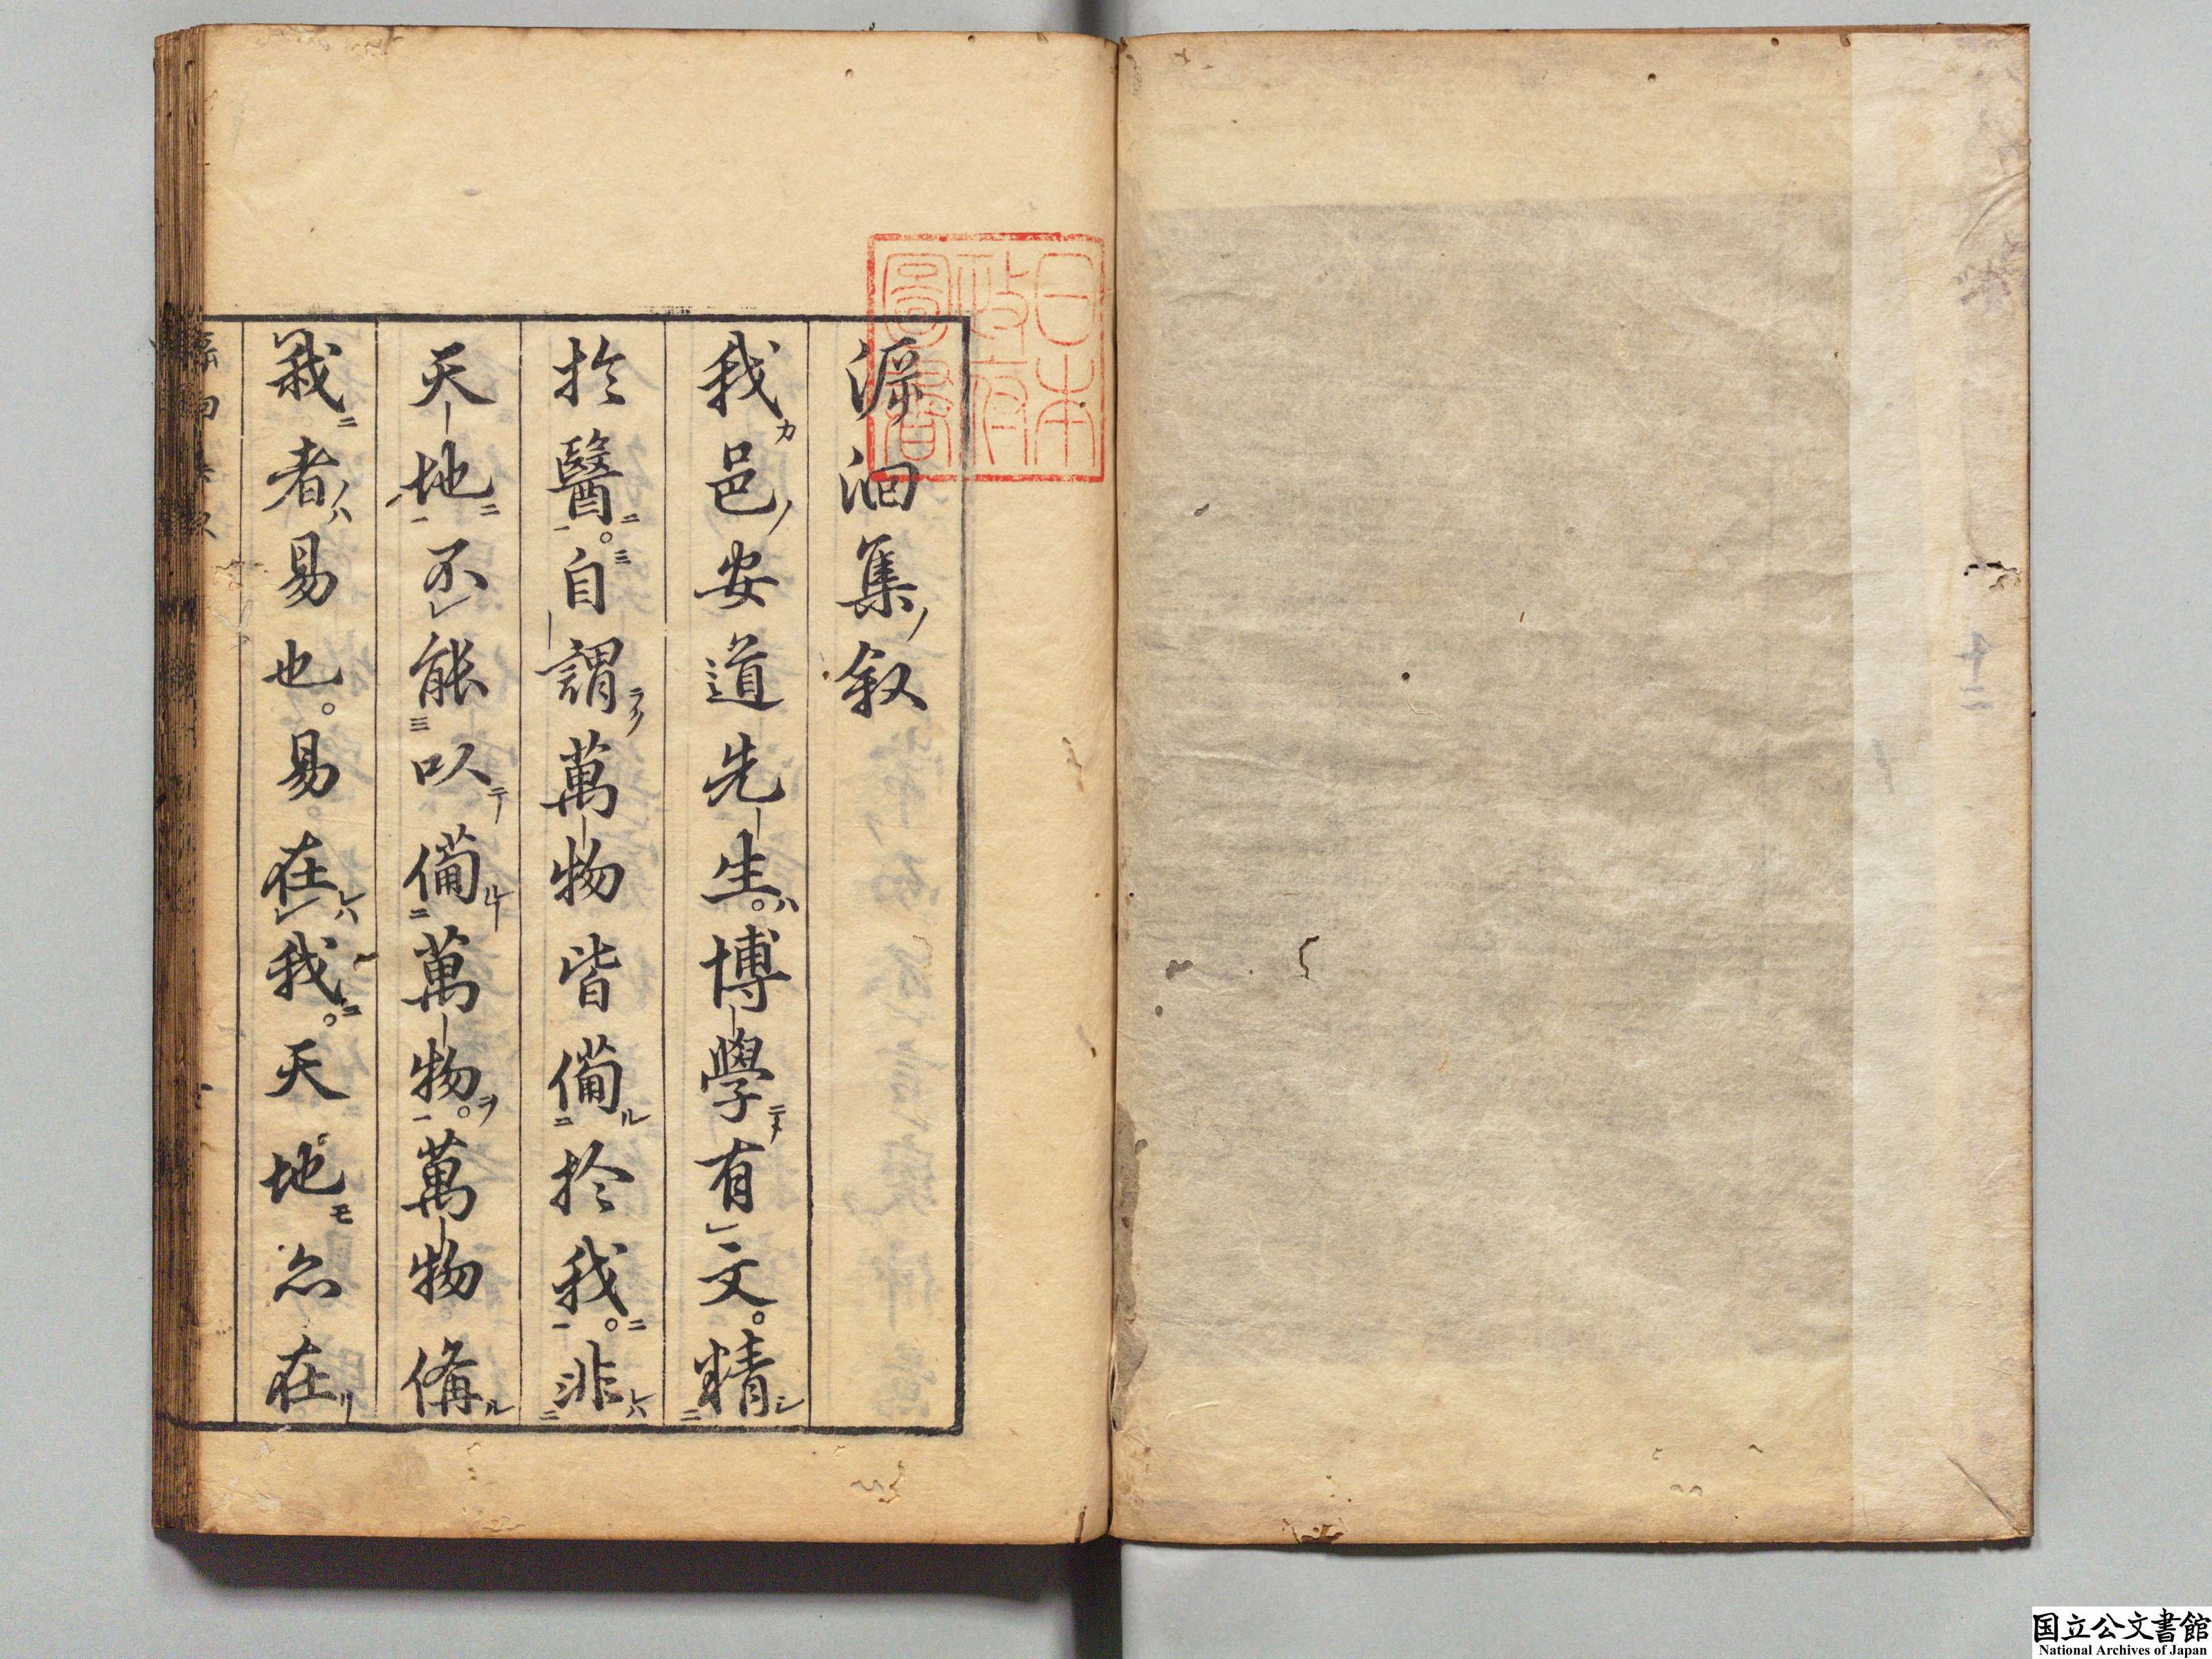 源洄集ノ叙
我カ邑ノ安道先生ハ。博學ニ〆有レ文。精シ
於醫ニ。自謂ラク萬物皆備ル於我ニ。非レハ
天地ニ不レ能以テ備ルヿ萬物ヲ。萬物備ル
我ニ者ノハ易也。易在レハ我ニ。天地モ亦在リ
日本
政府
圖書
国立公文書館
National Archives of Japan